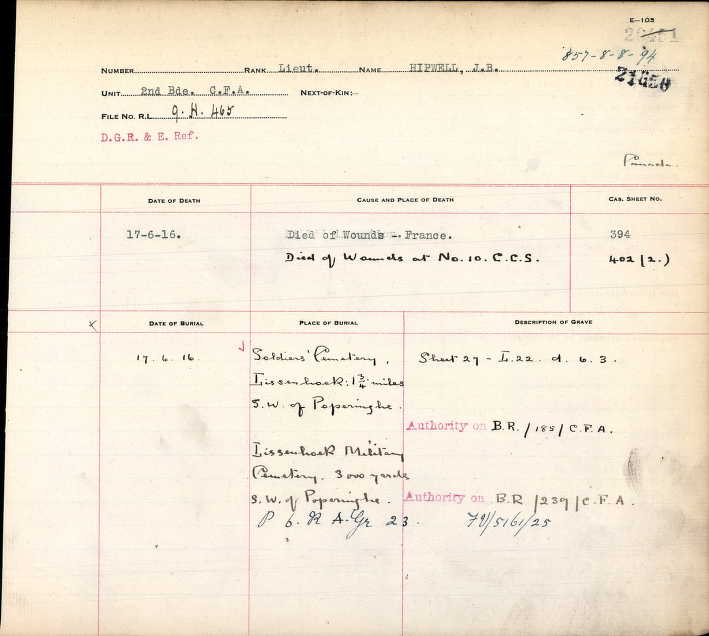 E—103
'857-8-8-'94
NUMBER RANK Lieut. NAME HIPWELL, J.B.
UNIT 2nd Bde. C.F.A. NEXT-OF-KIN:—
FILE NO. R.L. 9.H. 465
D.G.R. & E. Ref.
DATE OF DEATH CAUSE AND PLACE OF DEATH CAS. SHEET NO.
17-6-16. Died of Wounds - France. 394
Died of Wounds at No. 10. C.C.S. 402 (2.)
x DATE OF BURIAL PLACE OF BURIAL DESCRIPTION OF GRAVE
17. 6. 16. Soldiers' Cemetery, Sheet 27 - L.22. d. 6. 3.
Lissenhoek: 1 3/4 miles
S.W. of Poperinghe.
Authority on B.R. / 185 / C.F.A.
Lissenhoek Military
Cemetery. 3000 yards
S.W. of Poperinghe. Authority on B.R / 239 / C.F.A.
P 6. R A. Gr 23.